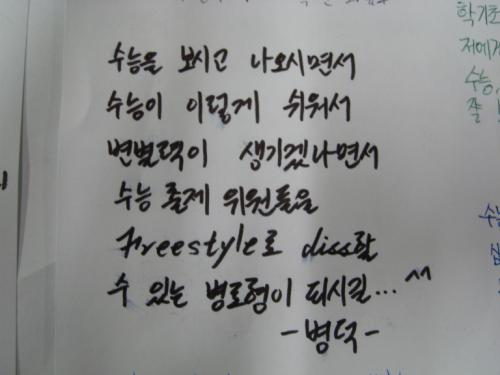 수능을 보시고 나오시면서
수능이 이렇게 쉬워서
변별력이 생기겠냐면서
수능 출제 위원들을
Freestyle로 diss할
수 있는 병로형이 되시길... ^^
-병덕-
학기초
저에게
수능